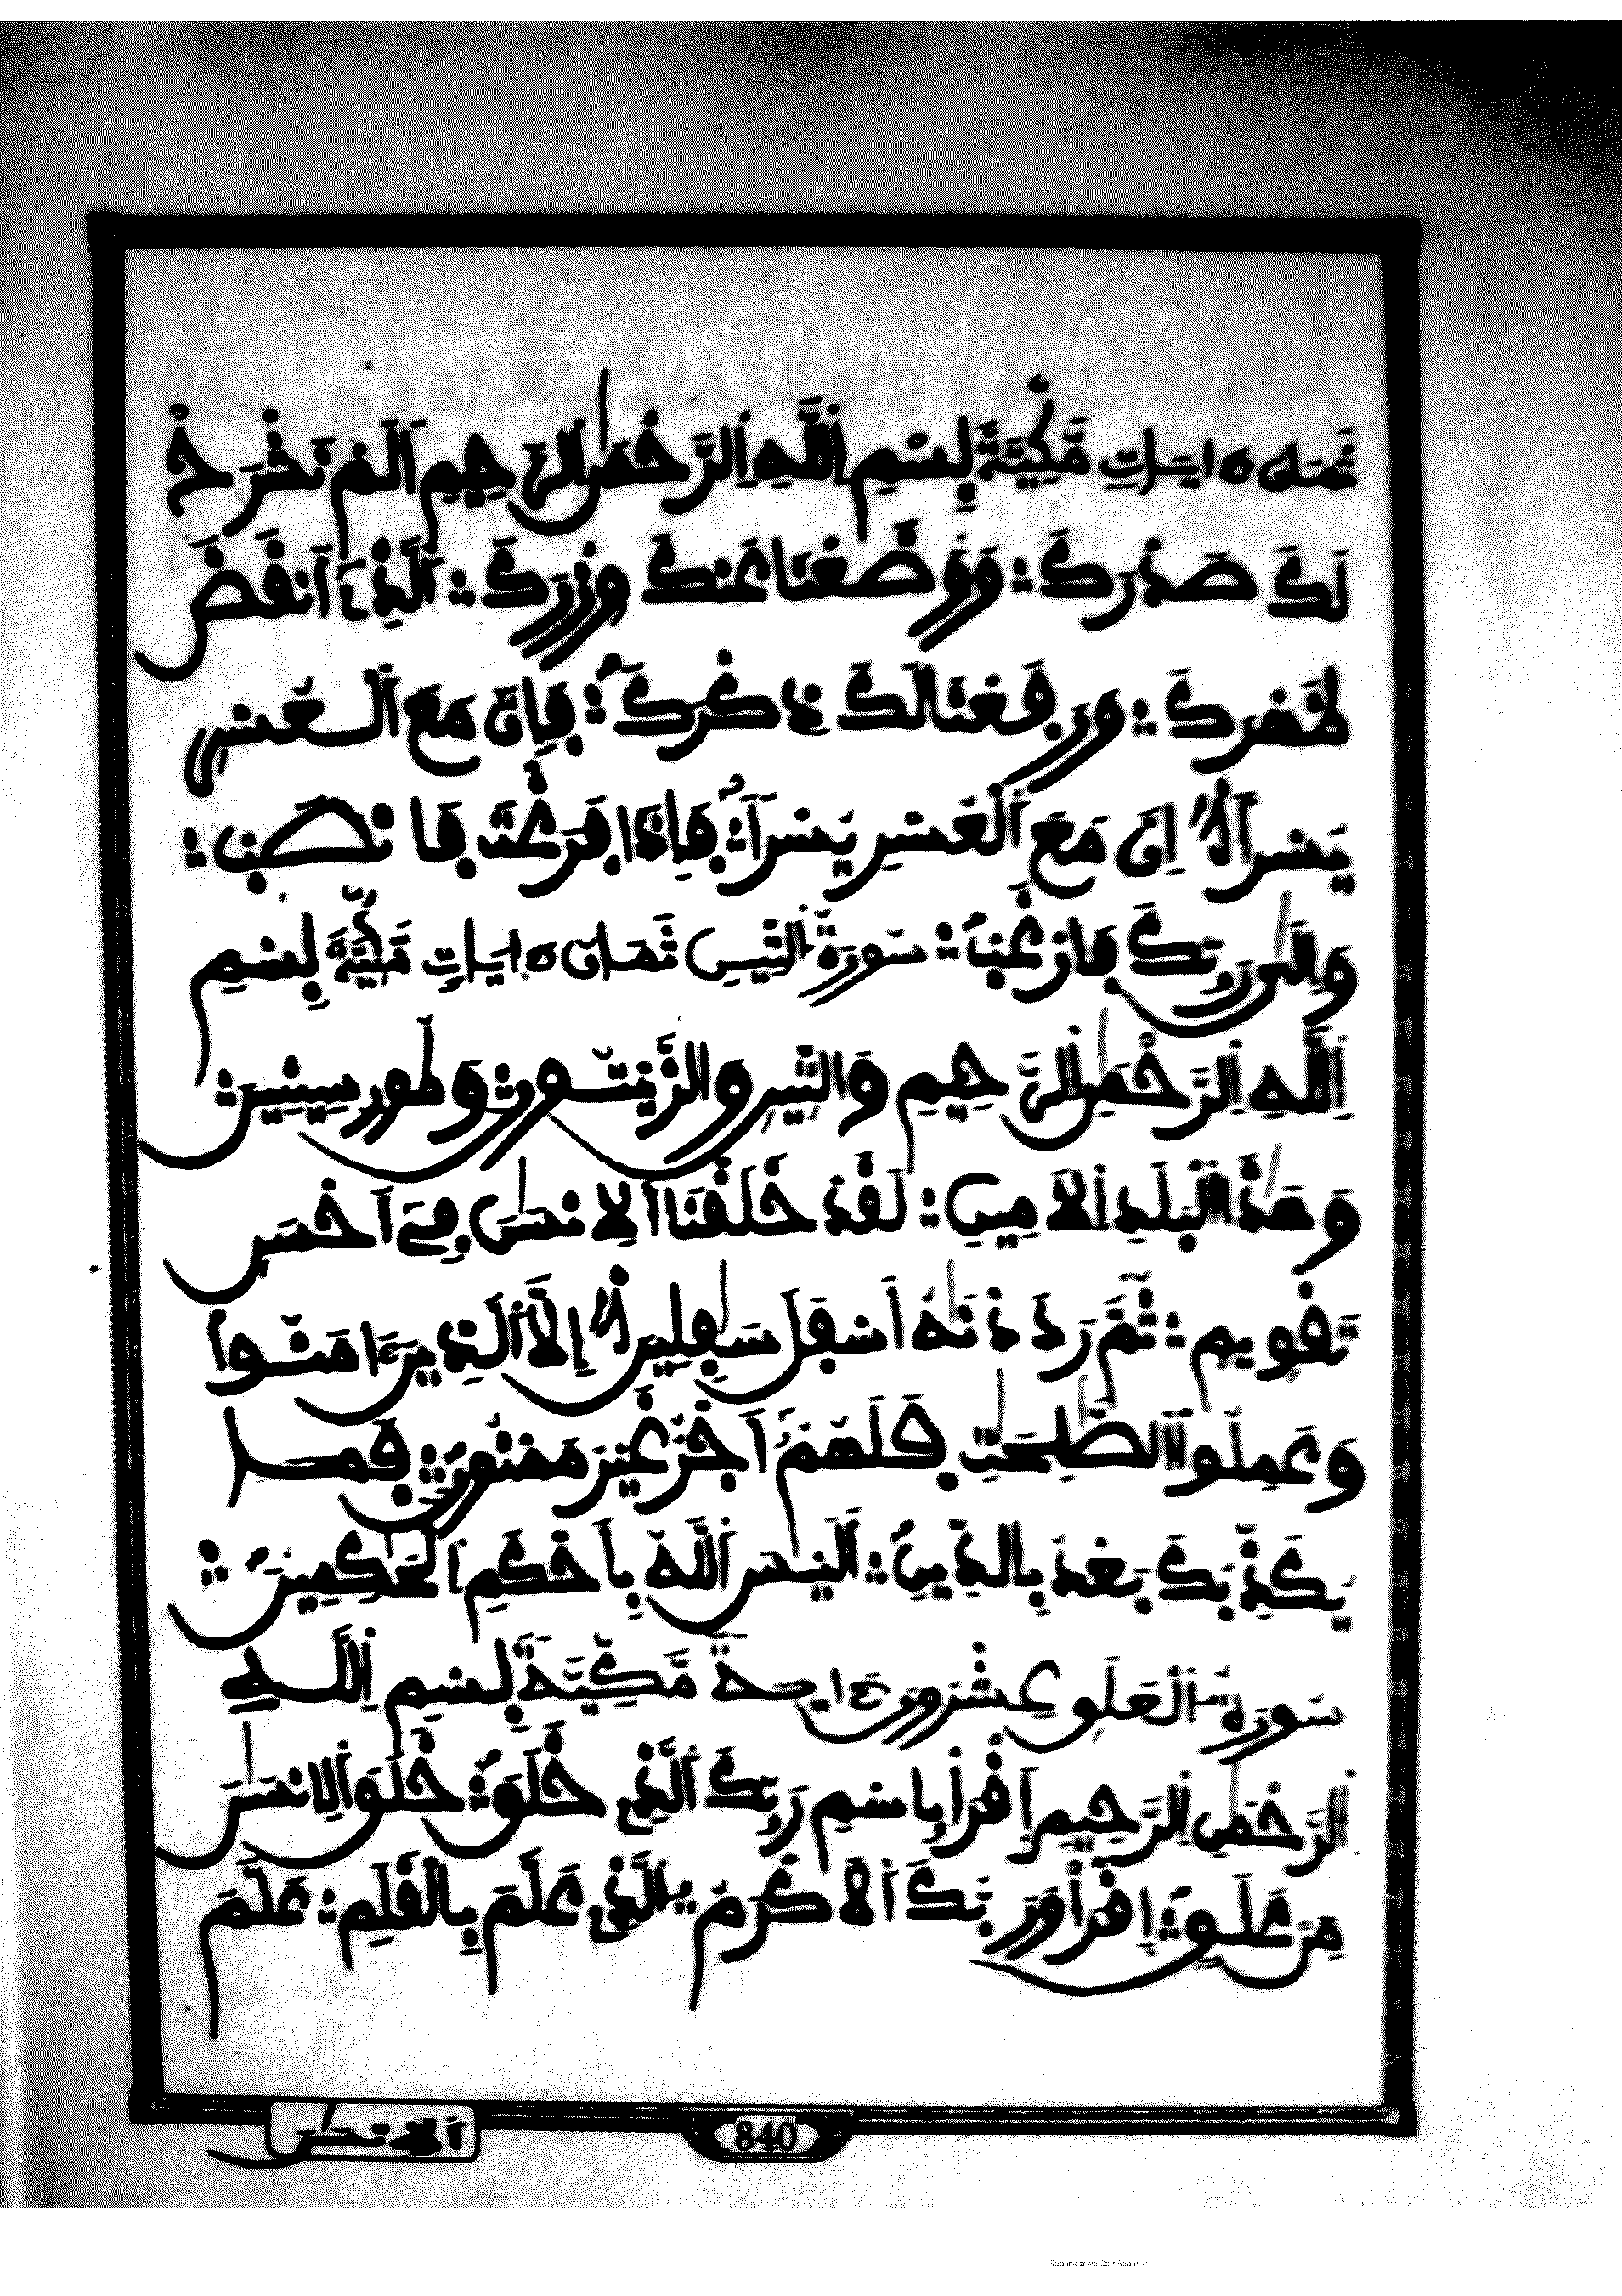 ثَمَانِ ءَايَاتٍ مَّكِّيَّةٌ بِسْمِ اِللَّهِ اِلرَّحْمَٰنِ اِلرَّحِيمِ أَلَمْ نَشْرَحْ
لَكَ صَدْرَكَ ؞ وَوَضَعْنَا عَنكَ وِزْرَكَ ؞ اَلَّذِےٓ أَنقَضَ
ظَهْرَكَ ؞ وَرَفَعْنَا لَكَ ذِكْرَكَ ؞ فَإِنَّ مَعَ اَلْعُسْرِ
يُسْراً اِنَّ مَعَ اَلْعُسْرِ يُسْراً ؞ فَإِذَا فَرَغْتَ فَانصَبْ ؞
وَإِلَىٰ رَبِّكَ فَارْغَب ؞ سُورَةُ التِّينِ ثَمَانِ ءَايَاتٍ مَّكِّيَّةٌ بِسْمِ
اِللَّهِ اِلرَّحْمَٰنِ اِلرَّحِيمِ وَالتِّينِ وَالزَّيْتُونِ ؞ وَطُورِ سِينِينَ ؞
وَهَٰذَا اَلْبَلَدِ اِلَامِينِ ؞ لَقَدْ خَلَقْنَا اَلِانسَٰنَ فِےٓ أَحْسَنِ
تَقْوِيمٍ ؞ ثُمَّ رَدَدْنَٰهُ أَسْفَلَ سَٰفِلِينَ إِلَّا اَلَّذِينَ ءَامَنُواْ
وَعَمِلُواْ اُلصَّٰلِحَٰتِ فَلَهُمُۥٓ أَجْرٌ غَيْرُ مَمْنُونٍ ؞ فَمَا
يُكَذِّبُكَ بَعْدُ بِالدِّينِ ؞ أَلَيْسَ اَللَّهُ بِأَحْكَمِ اِلْحَٰكِمِينَ ؞
سُورَةُ اَلْعَلَقِ عِشْرُونَ ءَايَةً مَّكِّيَّةٌ بِسْمِ اِللَّهِ
اِلرَّحْمَٰنِ اِلرَّحِيمِ اِقْرَأْ بِاسْمِ رَبِّكَ اَلَّذِے خَلَقَ ؞ خَلَقَ اَلِانسَٰنَ
مِنْ عَلَقٍ ؞ اِقْرَأْ وَرَبُّكَ اَلَاكْرَمُ ؞ اَلَّذِے عَلَّمَ بِالْقَلَمِ ؞ عَلَّمَ
اَلِانسَٰنَ
840